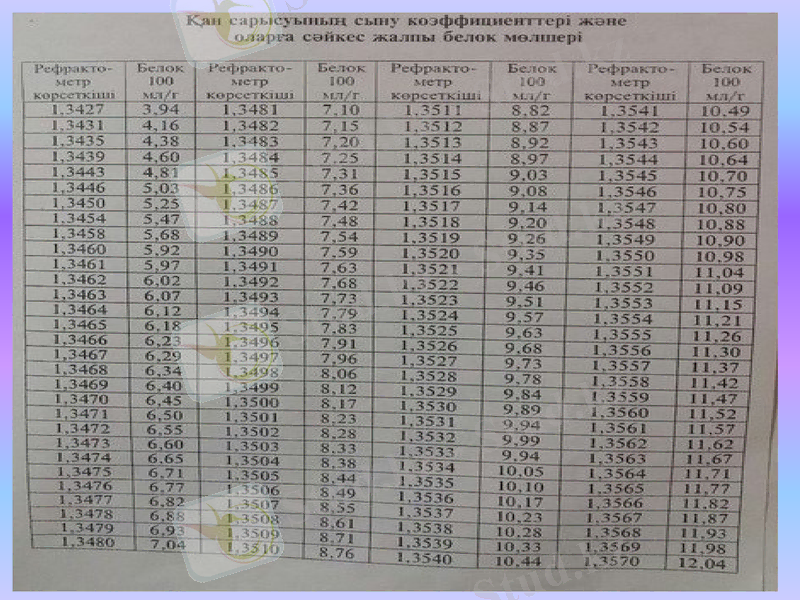 Қан сарысуының сыну коэффициенттері және
оларға сәйкес жалпы белок мөлшері
Рефракто- Белок Рефракто- Белок Рефракто- Белок Рефракто- Белок
метр 100 метр 100 метр 100 метр 100
көрсеткіші мл/г көрсеткіші мл/г көрсеткіші мл/г көрсеткіші мл/г
1,3427 3,94 1,3481 7,10 1,3511 8,82 1,3541 10,49
1,3431 4,16 1,3482 7,15 1,3512 8,87 1,3542 10,54
1,3435 4,38 1,3483 7,20 1,3513 8,92 1,3543 10,60
1,3439 4,60 1,3484 7,25 1,3514 8,97 1,3544 10,64
1,3443 4,81 1,3485 7,31 1,3515 9,03 1,3545 10,70
1,3446 5,03 1,3486 7,36 1,3516 9,08 1,3546 10,75
1,3450 5,25 1,3487 7,42 1,3517 9,14 1,3547 10,80
1,3454 5,47 1,3488 7,48 1,3518 9,20 1,3548 10,88
1,3458 5,68 1,3489 7,54 1,3519 9,26 1,3549 10,90
1,3460 5,92 1,3490 7,59 1,3520 9,35 1,3550 10,98
1,3461 5,97 1,3491 7,63 1,3521 9,41 1,3551 11,04
1,3462 6,02 1,3492 7,68 1,3522 9,46 1,3552 11,09
1,3463 6,07 1,3493 7,73 1,3523 9,51 1,3553 11,15
1,3464 6,12 1,3494 7,79 1,3524 9,57 1,3554 11,21
1,3465 6,18 1,3495 7,83 1,3525 9,63 1,3555 11,26
1,3466 6,23 1,3496 7,91 1,3526 9,68 1,3556 11,30
1,3467 6,29 1,3497 7,96 1,3527 9,73 1,3557 11,37
1,3468 6,34 1,3498 8,06 1,3528 9,78 1,3558 11,42
1,3469 6,40 1,3499 8,12 1,3529 9,84 1,3559 11,47
1,3470 6,45 1,3500 8,17 1,3530 9,89 1,3560 11,52
1,3471 6,50 1,3501 8,23 1,3531 9,94 1,3561 11,57
1,3472 6,55 1,3502 8,28 1,3532 9,99 1,3562 11,62
1,3473 6,60 1,3503 8,33 1,3533 9,94 1,3563 11,67
1,3474 6,65 1,3504 8,38 1,3534 10,05 1,3564 11,71
1,3475 6,71 1,3505 8,44 1,3535 10,10 1,3565 11,77
1,3476 6,77 1,3506 8,49 1,3536 10,17 1,3566 11,82
1,3477 6,82 1,3507 8,55 1,3537 10,23 1,3567 11,87
1,3478 6,88 1,3508 8,61 1,3538 10,28 1,3568 11,93
1,3479 6,93 1,3509 8.71 1,3539 10,33 1,3569 11,98
1,3480 7,04 1,3510 8,76 1,3540 10,44 1,3570 12,04